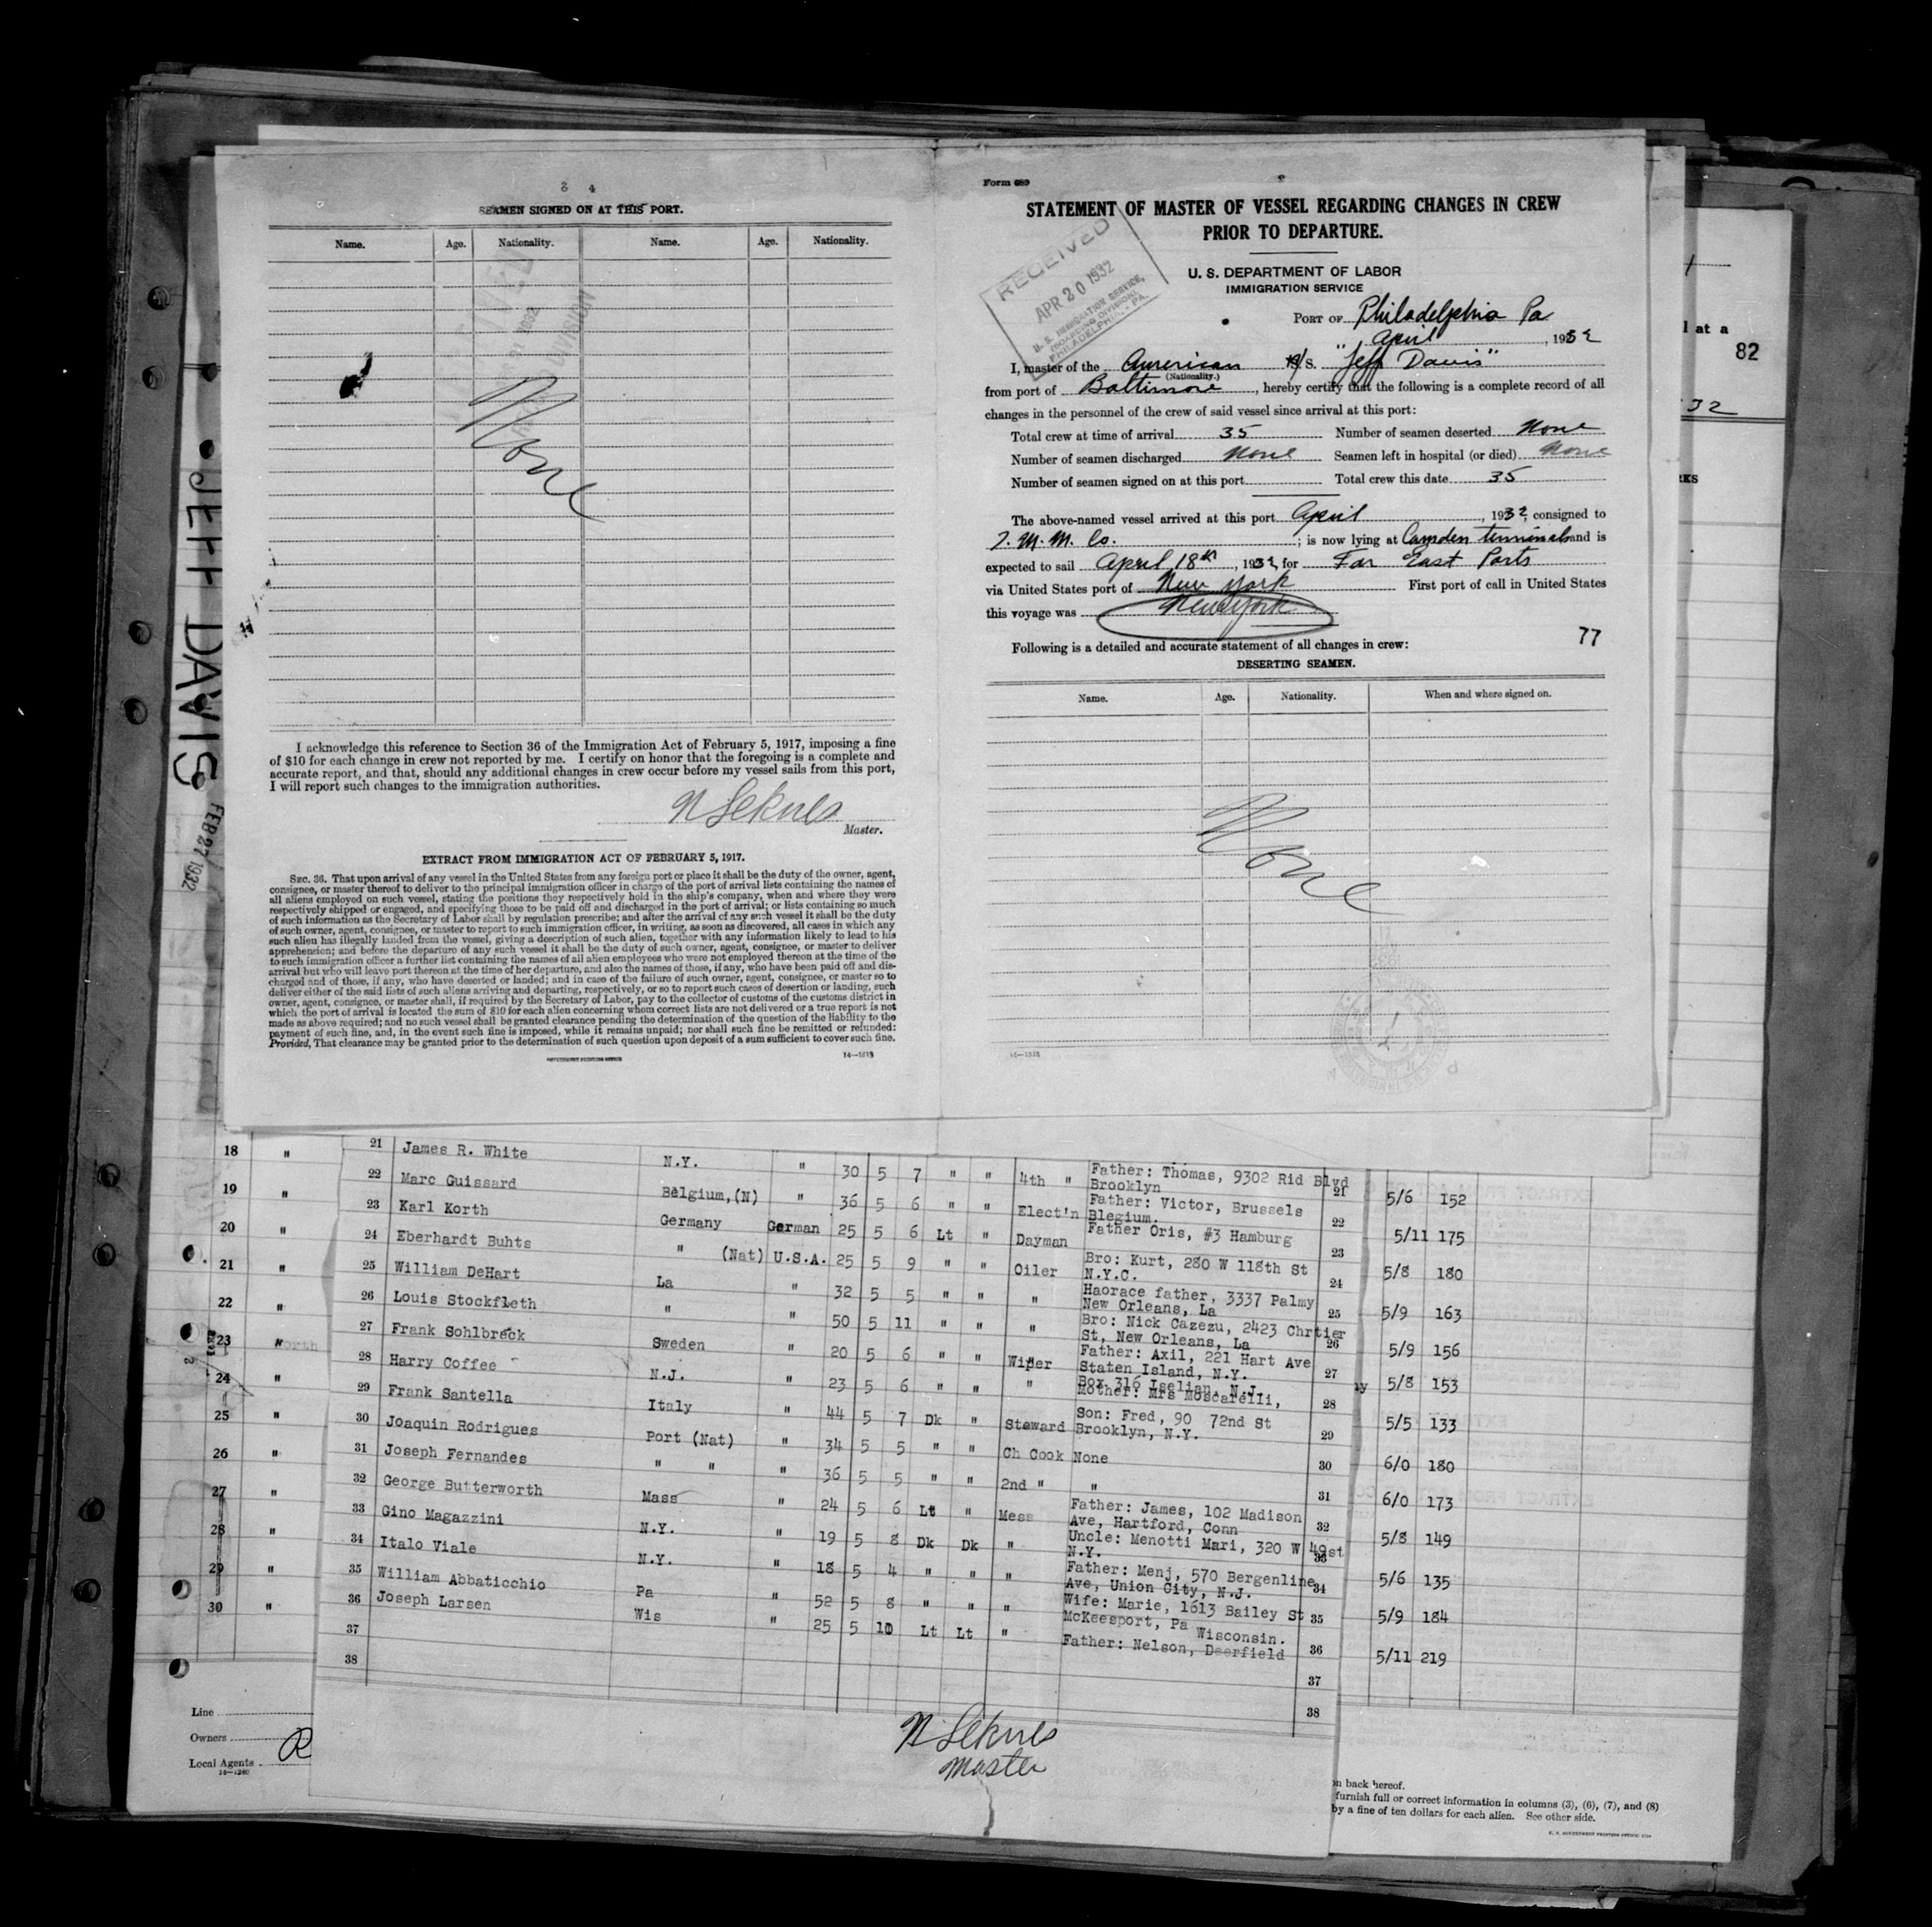 JEFF DAVIS
FEB 27 1932
3 4
SEAMEN SIGNED ON AT THIS PORT.
Name. Age. Nationality. Name. Age. Nationality.
None
I acknowledge this reference to Section 36 of the Immigration Act of February 5, 1917, imposing a fine
of $10 for each change in crew not reported by me. I certify on honor that the foregoing is a complete and
accurate report, and that, should any additional changes in crew occur before my vessel sails from this port,
I will report such changes to the immigration authorities.
Master.
EXTRACT FROM IMMIGRATION ACT OF FEBRUARY 5, 1917.
SEC. 36. That upon arrival of any vessel in the United States from any foreign port or place it shall be the duty of the owner, agent,
consignee, or master thereof to deliver to the principal immigration officer in charge of the port of arrival lists containing the names of
all aliens employed on such vessel, stating the positions they respectively hold in the ship's company, when and where they were
respectively shipped or engaged, and specifying those to be paid off and discharged in the port of arrival; or lists containing so much
of such information as the Secretary of Labor shall by regulation prescribe; and after the arrival of any such vessel it shall be the duty
of such owner, agent, consignee, or master to report to such immigration officer, in writing, as soon as discovered, all cases in which any
such alien has illegally landed from the vessel, giving a description of such alien, together with any information likely to lead to his
apprehension; and before the departure of any such vessel it shall be the duty of such owner, agent, consignee, or master to deliver
to such immigration officer a further list containing the names of all alien employees who were not employed thereon at the time of the
arrival but who will leave port thereon at the time of her departure, and also the names of those, if any, who have been paid off and dis-
charged and of those, if any, who have deserted or landed; and in case of the failure of such owner, agent, consignee, or master so to
deliver either of the said lists of such aliens arriving and departing, respectively, or so to report such cases of desertion or landing, such
owner, agent, consignee, or master shall, if required by the Secretary of Labor, pay to the collector of customs of the customs district in
which the port of arrival is located the sum of $10 for each alien concerning whom correct lists are not delivered or a true report is not
made as above required; and no such vessel shall be granted clearance pending the determination of the question of the liability to the
payment of such fine, and, in the event such fine is imposed, while it remains unpaid; nor shall such fine be remitted or refunded:
Provided, That clearance may be granted prior to the determination of such question upon deposit of a sum sufficient to cover such fine.
GOVERNMENT PRINTING OFFICE 14—1313
Form 689
STATEMENT OF MASTER OF VESSEL REGARDING CHANGES IN CREW
PRIOR TO DEPARTURE.
RECEIVED
APR 20 1932
U. S. IMMIGRATION SERVICE,
(BOARDING DIVISION),
PHILADELPHIA, PA.
U. S. DEPARTMENT OF LABOR
IMMIGRATION SERVICE
PORT OF Philadelphia Pa
April, 1932
I, master of the American M/S. "Jeff Davis"
(Nationality.)
from port of Baltimore, hereby certify that the following is a complete record of all
changes in the personnel of the crew of said vessel since arrival at this port:
Total crew at time of arrival 35 Number of seamen deserted None
Number of seamen discharged None Seamen left in hospital (or died) None
Number of seamen signed on at this port Total crew this date 35
The above-named vessel arrived at this port April, 1932, consigned to
I. M. M. Co.; is now lying at Camden terminals and is
expected to sail April 18th, 1932, for Far East Ports
via United States port of New York First port of call in United States
this voyage was New York
77
Following is a detailed and accurate statement of all changes in crew:
DESERTING SEAMEN.
Name. Age. Nationality. When and where signed on.
None
14—1313
l at a
82
32
RKS
21 James R. White N.Y. " 30 5 7 " " 4th " Father: Thomas, 9302 Rid Blvd Brooklyn 21
22 Marc Guissard Belgium,(N) " 36 5 6 " " Elect'n Father: Victor, Brussels Blegium. 22
23 Karl Korth Germany German 25 5 6 Lt " Dayman Father Oris, #3 Hamburg 23
24 Eberhardt Buhts " (Nat) U.S.A. 25 5 9 " " Oiler Bro: Kurt, 280 W 118th St N.Y.C. 24
25 William DeHart La " 32 5 5 " " " Haorace father, 3337 Palmy New Orleans, La 25
26 Louis Stockfleth " " 50 5 11 " " " Bro: Nick Cazezu, 2423 Chrtier St, New Orleans, La 26
27 Frank Sohlbreck Sweden " 20 5 6 " " Wiper Father: Axil, 221 Hart Ave Staten Island, N.Y. 27
28 Harry Coffee N.J. " 23 5 6 " " " Box 316 Iselian, N.J. Mother: Mrs Moscarelli, 28
29 Frank Santella Italy " 44 5 7 Dk " Steward Son: Fred, 90 72nd St Brooklyn, N.Y. 29
30 Joaquin Rodrigues Port (Nat) " 34 5 5 " " Ch Cook None 30
31 Joseph Fernandes " " " 36 5 5 " " 2nd " " 31
32 George Butterworth Mass " 24 5 6 Lt " Mess Father: James, 102 Madison Ave, Hartford, Conn 32
33 Gino Magazzini N.Y. " 19 5 8 Dk Dk " Uncle: Menotti Mari, 320 W 49st N.Y. 33
34 Italo Viale N.Y. " 18 5 4 " " " Father: Menj, 570 Bergenline Ave, Union City, N.J. 34
35 William Abbaticchio Pa " 52 5 8 " " " Wife: Marie, 1613 Bailey St McKeesport, Pa 35
36 Joseph Larsen Wis " 25 5 10 Lt Lt " Wisconsin. Father: Nelson, Deerfield 36
37 37
38 38
Master
18 " 5/6 152
19 " 5/11 175
20 " 5/8 180
21 " 5/9 163
22 " 5/9 156
23 " 5/8 153
24 " 5/5 133
25 " 6/0 180
26 " 6/0 173
27 " 5/8 149
28 " 5/6 135
29 " 5/9 184
30 " 5/11 219
Line
Owners
Local Agents R
14—1240
on back hereof.
furnish full or correct information in columns (3), (6), (7), and (8)
by a fine of ten dollars for each alien. See other side.
U. S. GOVERNMENT PRINTING OFFICE